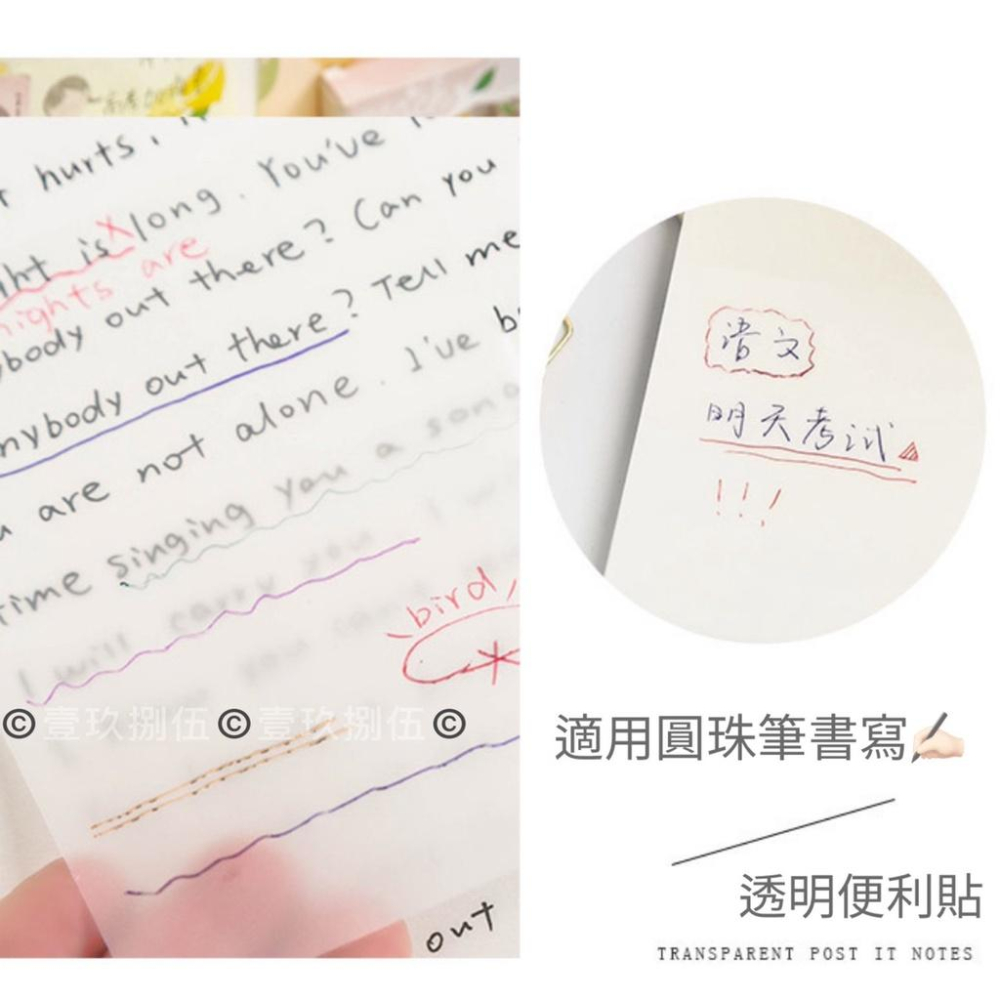 hurts,
ght is long. You've
nights are
ybody out there? Can you
nybody out there? Tell me
u are not alone. I've b
time singing you a song
I will carry you
bird
© 壹玖捌伍 © 壹玖捌伍 ©
out
语文
明天考试
!!!
適用圓珠筆書寫✍🏻
透明便利貼
TRANSPARENT POST IT NOTES